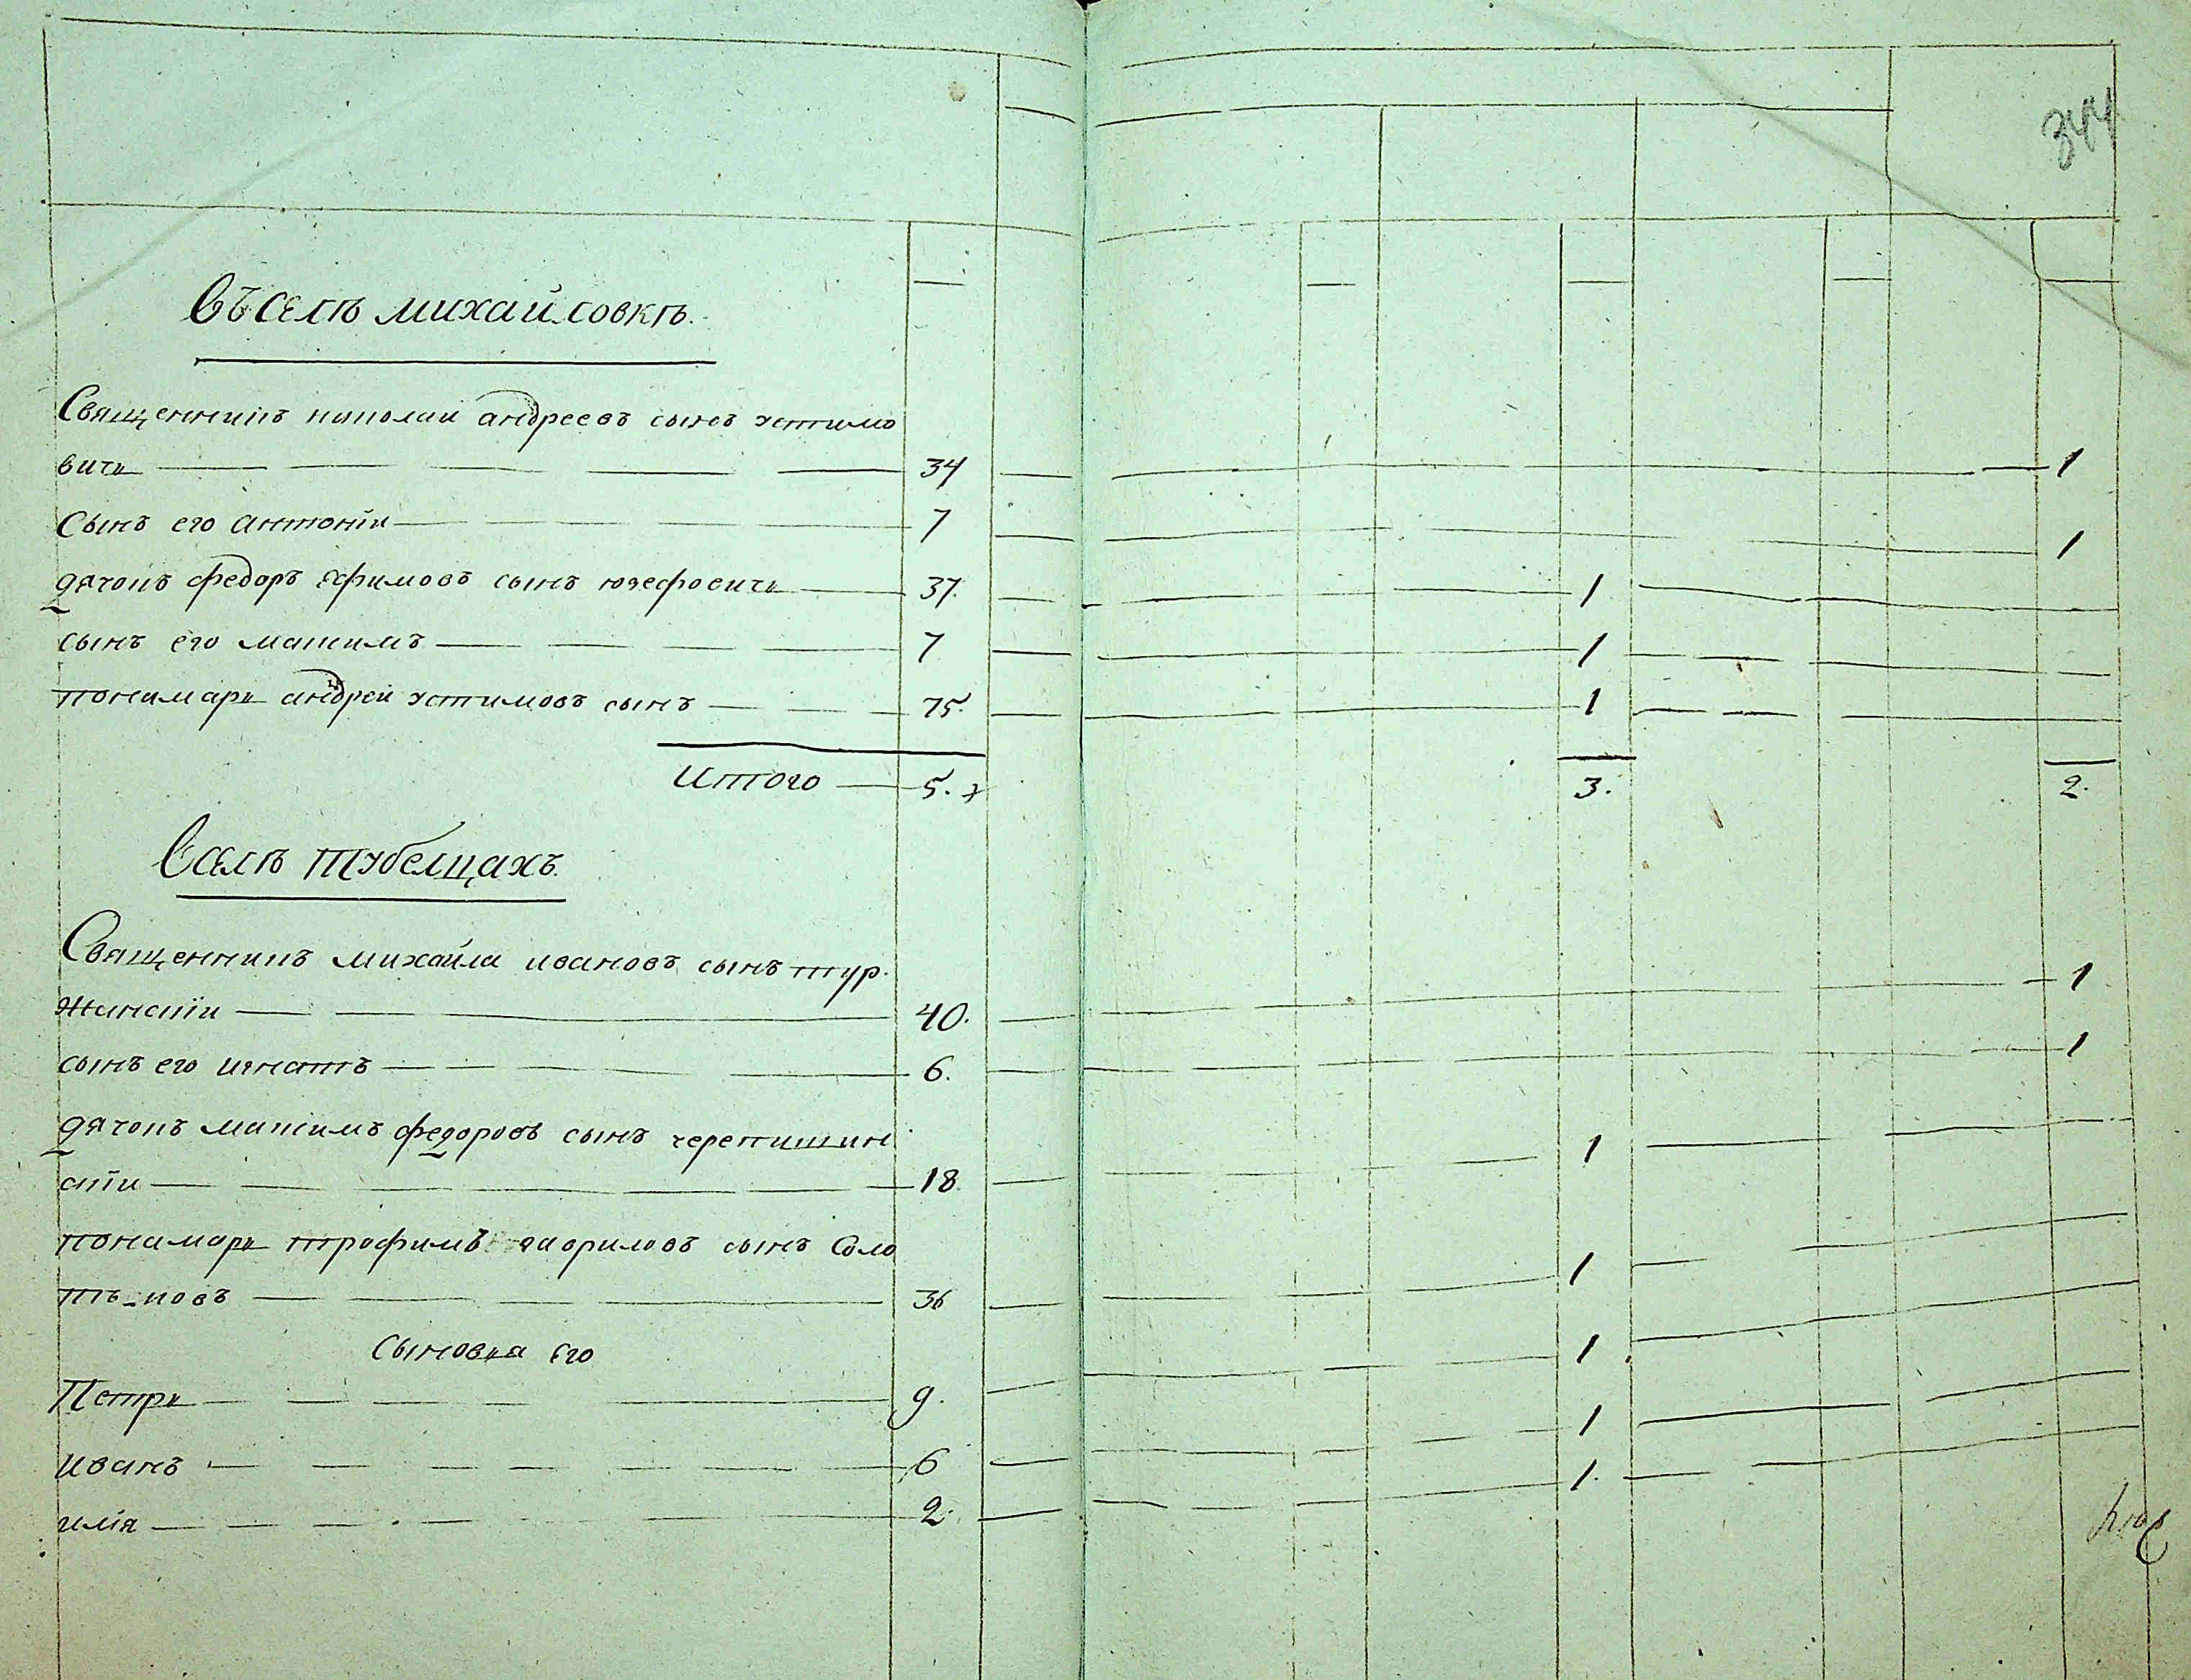 344
Въ селѣ михайловкѣ.
Священникъ николай андреевъ сынъ устимо
вичь 34 1
Сынъ его антоній 7 1
дячокъ федоръ Ефимовъ сынъ юзефовичь 37. 1
сынъ его максимъ 7 1
пономарь андрей устимовъ сынъ 75. 1
Итого 5. 3. 2.
В селѣ тубелцахъ.
Священникъ михайла ивановъ сынъ тур
жанскій 40. 1
сынъ его игнатъ 6. 1
дячокъ максимъ федоровъ сынъ черепишин
скій 18. 1
пономарь трофимъ гавриловъ сынъ Соло
36 1
Сыновья его
Петръ 9. 1
иванъ 6 1
илія 2. 1